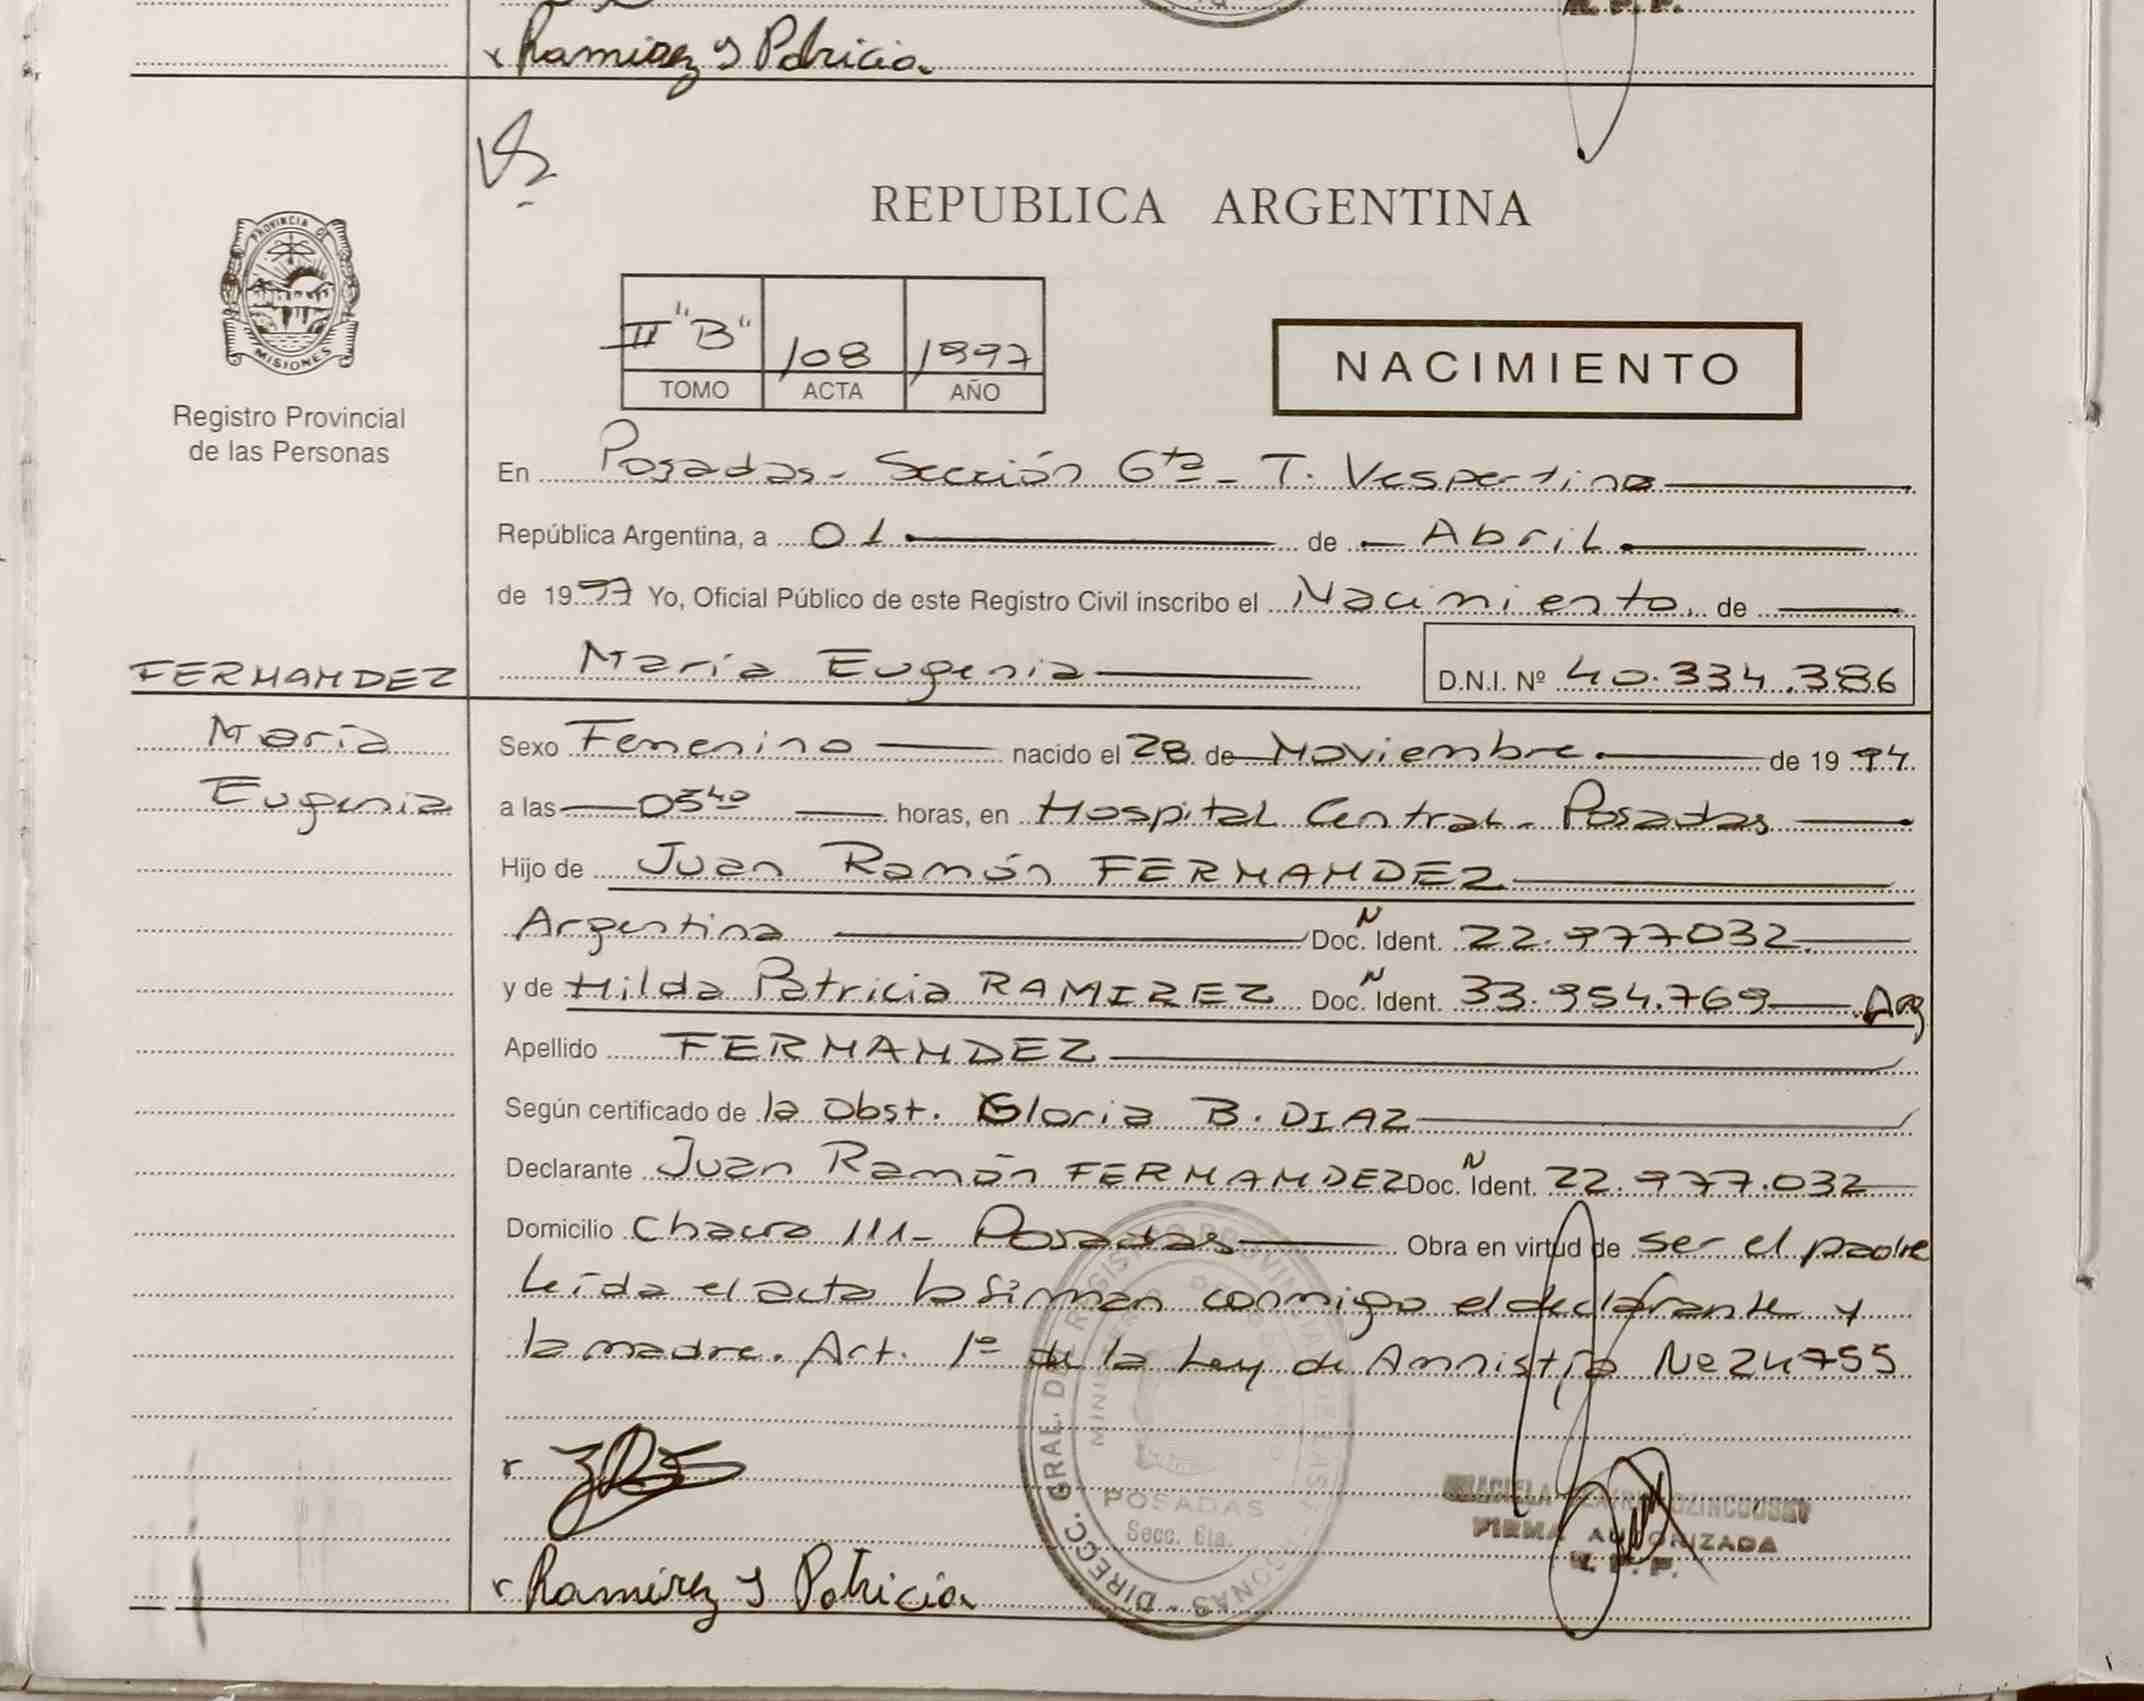 Ramirez Patricia
REPUBLICA ARGENTINA
PROVINCIA DE
MISIONES
Registro Provincial
de las Personas
II "B" 108 1997
TOMO ACTA AÑO
NACIMIENTO
En Posadas - Sección 6ta - T. Vespertino
República Argentina, a 01 de Abril
de 1997 Yo, Oficial Público de este Registro Civil inscribo el Nacimiento de
FERNANDEZ María Eugenia D.N.I. Nº 40.334.386
María
Eugenia
Sexo Femenino nacido el 28 de Noviembre de 1994
a las 05 40 horas, en Hospital Central - Posadas
Hijo de Juan Ramón FERNANDEZ
Argentina Doc. N Ident. 22.977032
y de Hilda Patricia RAMIREZ Doc. N Ident. 33.954.769 Arg
Apellido FERNANDEZ
Según certificado de la Obst. Gloria B. DIAZ
Declarante Juan Ramón FERNANDEZ Doc. N Ident. 22.977.032
Domicilio Chacra 111 - Posadas Obra en virtud de ser el padre
Leída el acta la firman conmigo el declarante y
la madre. Art. 1º de la Ley de Amnistía Nº 24755
DIRECC. GRAL. DE REGISTRO PROVINCIAL DE LAS PERSONAS
POSADAS
Secc. 6ta.
FIRMA AUTORIZADA
Ramirez Patricia